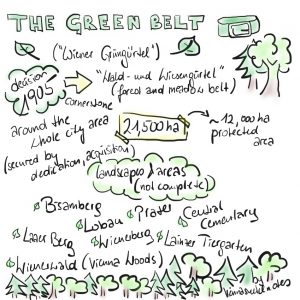 THE GREEN BELT
("Wiener Grüngürtel")
decision
1905
cornerstone
"Wald- und Wiesengürtel"
(forest and meadow belt)
around the
whole city area
(secured by
dedication, acquisition)
21,500 ha
~12,000 ha
protected
area
landscapes & areas
(not complete)
Bisamberg
Prater
Central
Cementary
Lobau
Laaer Berg
Wienerberg
Lainzer Tiergarten
Wienerwald (Vienna Woods)
by